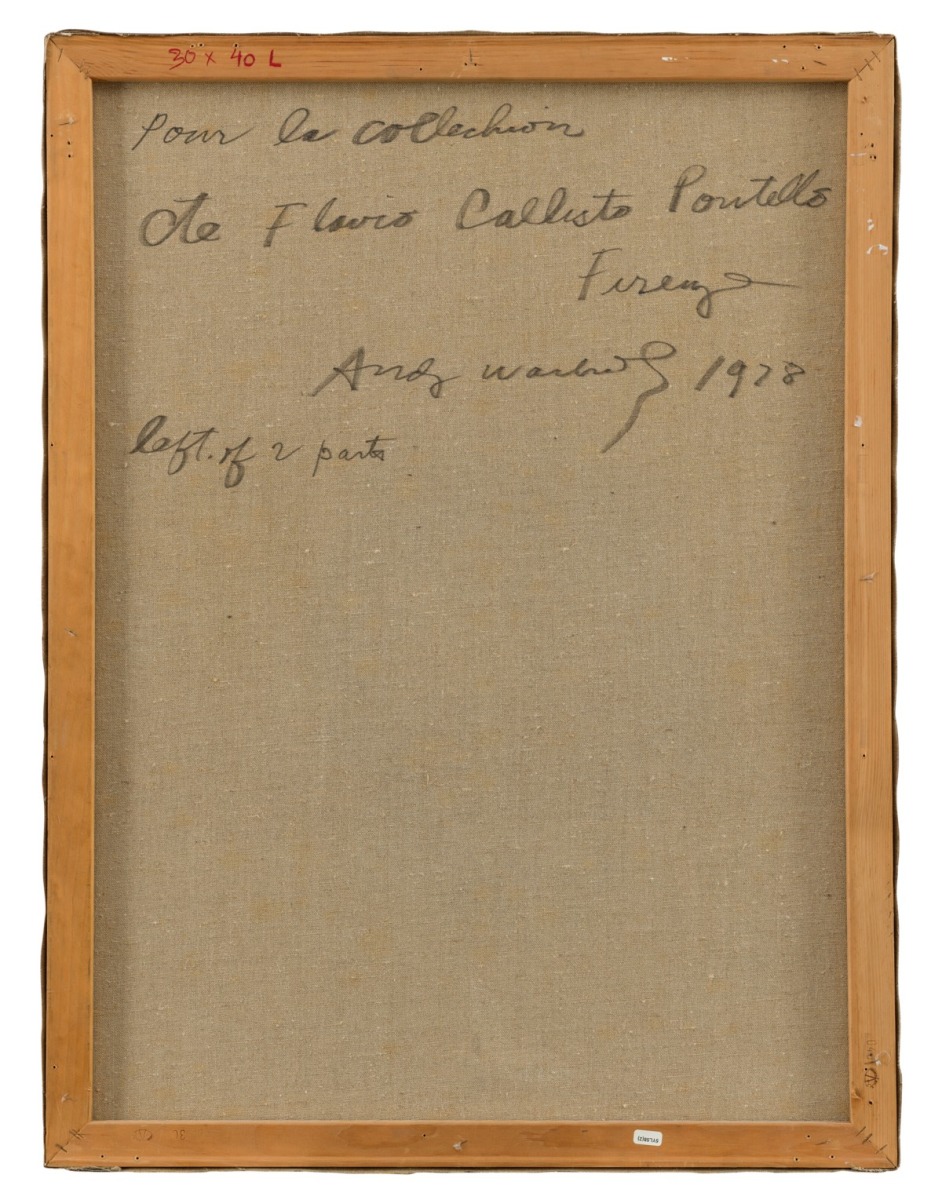 30 x 40 L
Pour la collection
de Flavio Callisto Pontello
Firenze
Andy Warhol 1978
left. of 2 parts